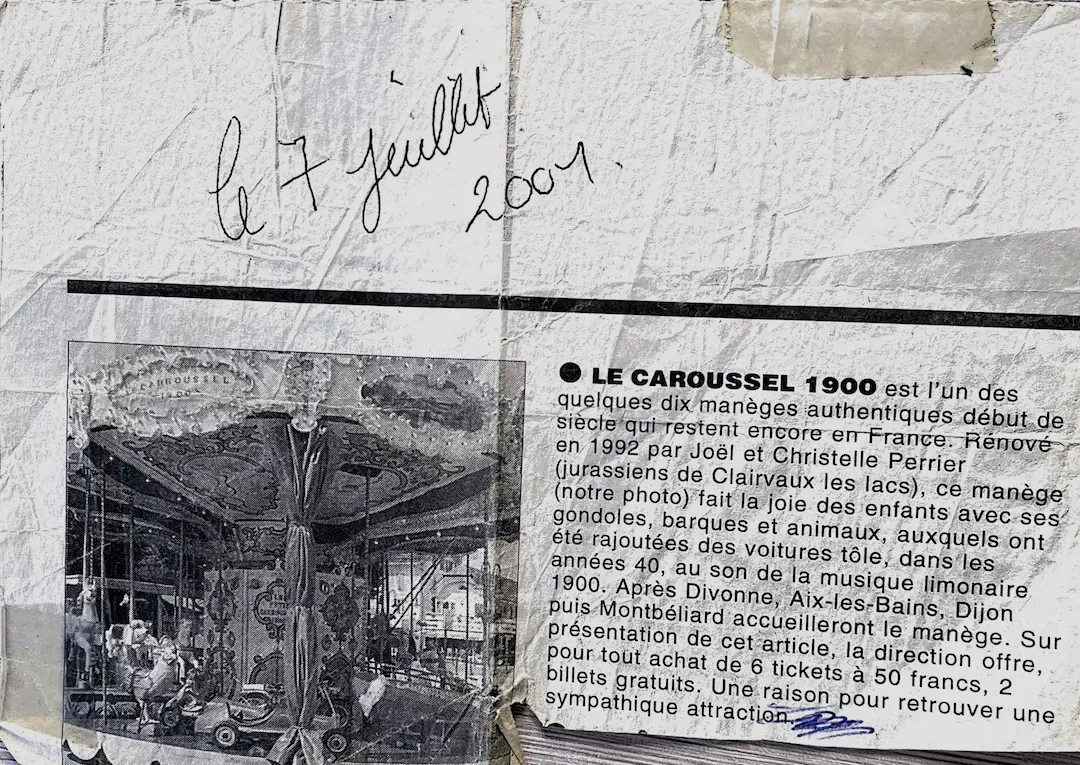 le 7 juillet
2001.
CARROUSSEL
1900
● LE CAROUSSEL 1900 est l'un des
quelques dix manèges authentiques début de
siècle qui restent encore en France. Rénové
en 1992 par Joël et Christelle Perrier
(jurassiens de Clairvaux les lacs), ce manège
(notre photo) fait la joie des enfants avec ses
gondoles, barques et animaux, auxquels ont
été rajoutées des voitures tôle, dans les
années 40, au son de la musique limonaire
1900. Après Divonne, Aix-les-Bains, Dijon
puis Montbéliard accueilleront le manège. Sur
présentation de cet article, la direction offre,
pour tout achat de 6 tickets à 50 francs, 2
billets gratuits. Une raison pour retrouver une
sympathique attraction.